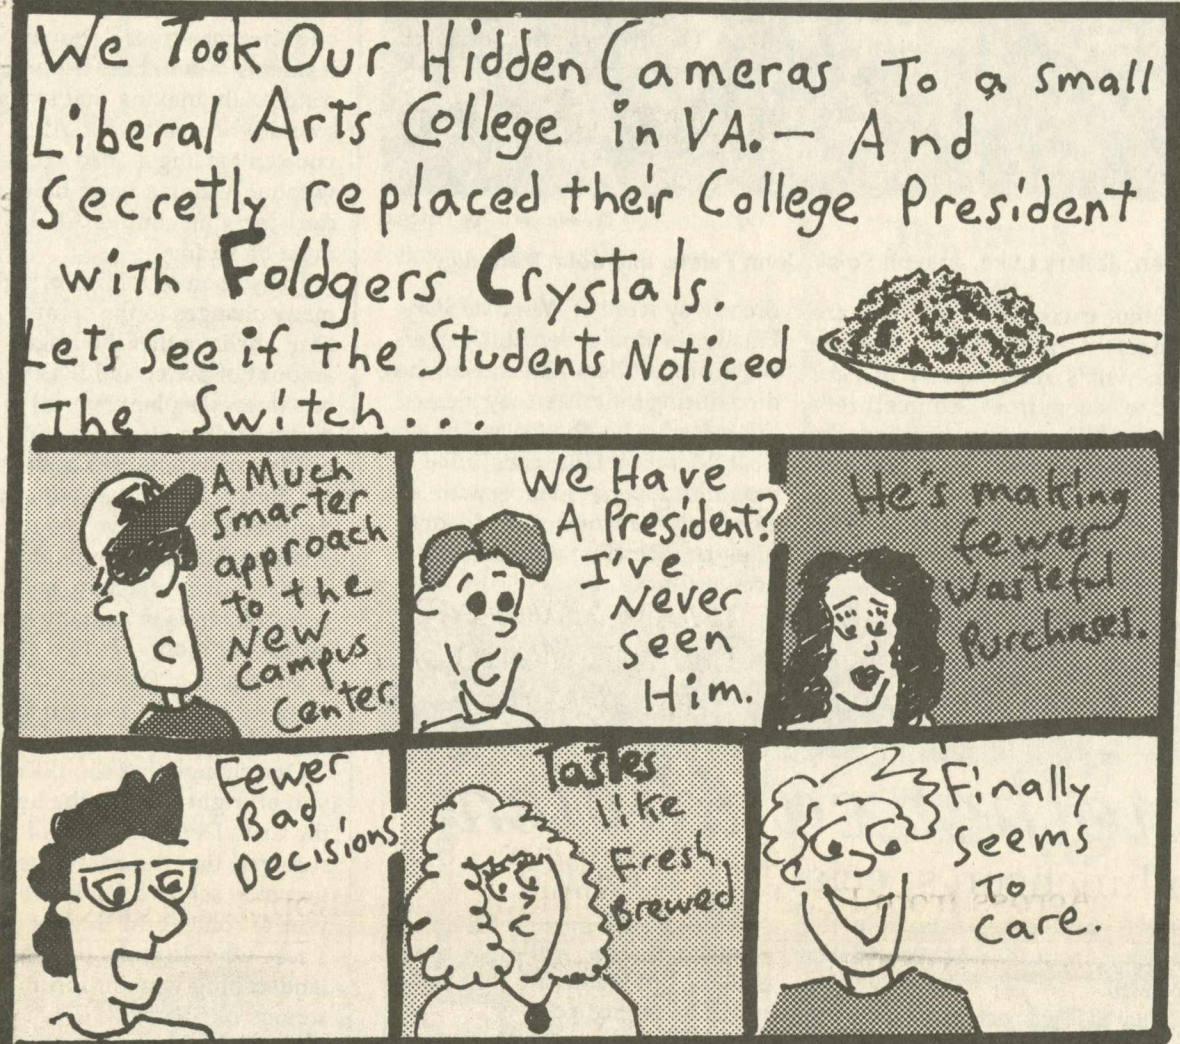 We Took Our Hidden Cameras To a small
Liberal Arts College in VA. — And
Secretly replaced their College President
with Foldgers Crystals.
Lets see if the Students Noticed
The Switch....
A Much
smarter
approach
to the
New
Campus
Center.
We Have
A President?
I've
Never
seen
Him.
He's making
fewer
wasteful
Purchases.
Fewer
Bad
Decisions
Tastes
like
Fresh
Brewed
Finally
seems
To
care.